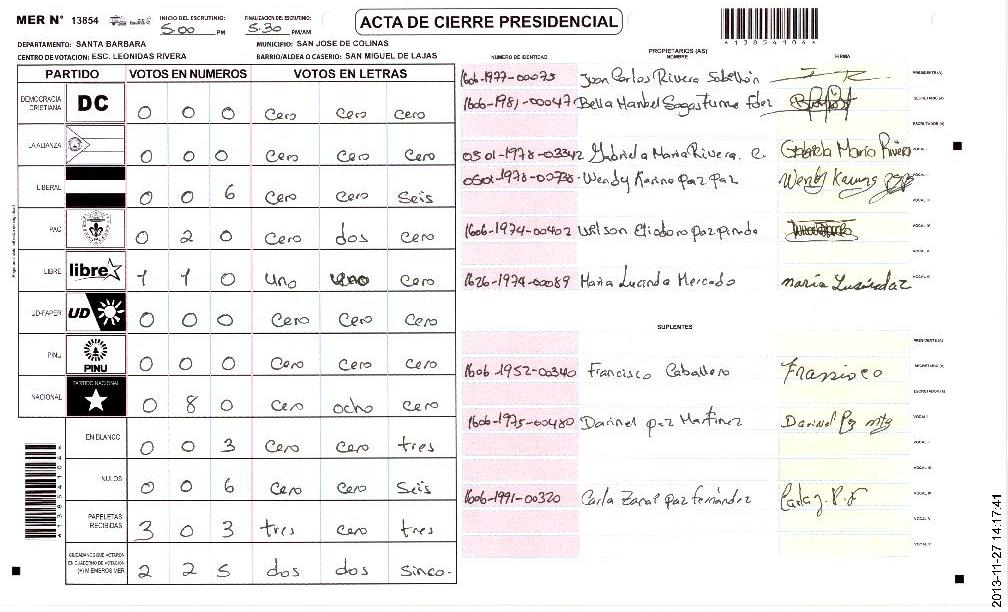 MER N° 13854
INICIO DEL ESCRUTINIO: 5:00 PM
FINALIZACION DEL ESCRUTINIO: 5:30 PM/AM
ACTA DE CIERRE PRESIDENCIAL
*13854104*
DEPARTAMENTO: SANTA BARBARA
MUNICIPIO: SAN JOSE DE COLINAS
CENTRO DE VOTACION: ESC. LEONIDAS RIVERA
BARRIO/ALDEA O CASERIO: SAN MIGUEL DE LAJAS
PARTIDO VOTOS EN NUMEROS VOTOS EN LETRAS
DEMOCRACIA CRISTIANA DC 0 0 0 Cero Cero Cero
LA ALIANZA 0 0 0 Cero Cero Cero
LIBERAL 0 0 6 Cero Cero Seis
PAC 0 2 0 Cero dos Cero
LIBRE libre 1 1 0 uno uno Cero
UD-FAPER UD 0 0 0 Cero Cero Cero
PINU PINU 0 0 0 Cero Cero Cero
NACIONAL PARTIDO NACIONAL 0 8 0 Cero ocho Cero
EN BLANCO 0 0 3 Cero Cero tres
NULOS 0 0 6 Cero Cero Seis
PAPELETAS RECIBIDAS 3 0 3 tres cero tres
CIUDADANOS QUE VOTARON EN CUADERNO DE VOTACION (+) MIEMBROS MER 2 2 5 dos dos Sinco-
PROPIETARIOS (AS)
NUMERO DE IDENTIDAD NOMBRE FIRMA
1606-1977-00075 Juan Carlos Rivera Sabellón PRESIDENTE (A)
1606-1981-00047 Bella Maribel Sagastume fdez SECRETARIO (A)
ESCRUTADOR (A)
0501-1978-03342 Gabriela Maria Rivera. C. Gabriela María Rivera VOCAL I
0501-1978-00738 Wendy Karina paz paz Wendy VOCAL II
VOCAL III
1606-1974-00402 Wilson Eliodoro paz pineda VOCAL IV
VOCAL V
1626-1974-00089 Maria Lucinda Mercado maria VOCAL VI
SUPLENTES
PRESIDENTE (A)
1606-1952-00340 Francisco Caballero Fransisco SECRETARIO (A)
ESCRUTADOR (A)
1606-1975-00480 Darinel paz Martinez Darinel Pz mtz VOCAL I
VOCAL II
VOCAL III
1606-1991-00320 Carla Zarai paz fernández Carla z. P. F VOCAL IV
VOCAL V
VOCAL VI
2013-11-27 14:17:41